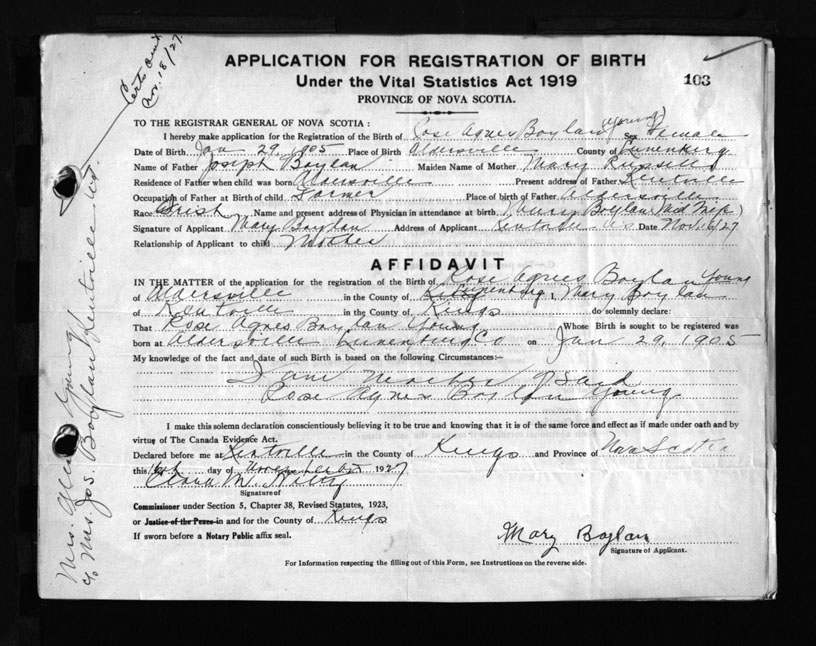 Certs Out
Nov. 18/27
APPLICATION FOR REGISTRATION OF BIRTH
Under the Vital Statistics Act 1919
103
PROVINCE OF NOVA SCOTIA.
TO THE REGISTRAR GENERAL OF NOVA SCOTIA:
I hereby make application for the Registration of the Birth of Rose Agnes Boylan (Young) Sex Female
Date of Birth Jan 29, 1905 Place of Birth Aldersville County of Lunenburg
Name of Father Joseph Boylan Maiden Name of Mother Mary Russell
Residence of Father when child was born Aldersville Present address of Father Kentville
Occupation of Father at Birth of child Farmer Place of birth of Father Aldersville
Race Irish Name and present address of Physician in attendance at birth Boylan
Signature of Applicant Mary Boylan Address of Applicant Kentville N.S. Date Nov. 16/27
Relationship of Applicant to child Mother
AFFIDAVIT
IN THE MATTER of the application for the registration of the Birth of Rose Agnes Boylan Young
of Aldersville in the County of Lunenburg, Mary Boylan
of Kentville in the County of Kings do solemnly declare:
That Rose Agnes Boylan Young Whose Birth is sought to be registered was
born at Aldersville Lunenburg Co on Jan 29, 1905
My knowledge of the fact and date of such Birth is based on the following Circumstances:—
I am Mother of Said
Rose Agnes Boylan Young
I make this solemn declaration conscientiously believing it to be true and knowing that it is of the same force and effect as if made under oath and by
virtue of The Canada Evidence Act.
Declared before me at Kentville in the County of Kings and Province of Nova Scotia
this 16th day of November 1927
Clara M.
Signature of
Commissioner under Section 5, Chapter 38, Revised Statutes, 1923,
or Justice of the Peace in and for the County of Kings
If sworn before a Notary Public affix seal.
Mary Boylan
Signature of Applicant.
For Information respecting the filling out of this Form, see Instructions on the reverse side.
Mrs. Young
c/o Mrs. Jos. Boylan Kentville N.S.